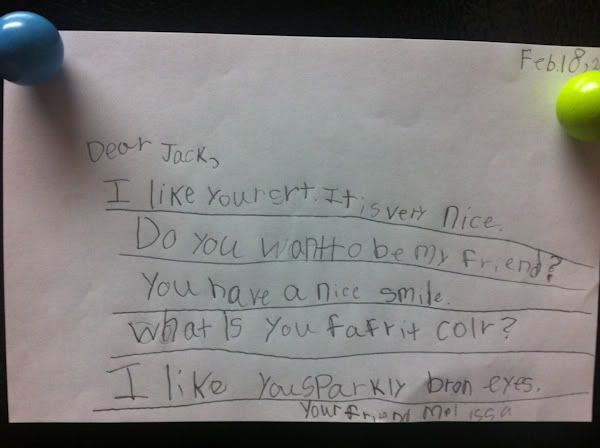 Feb.18,2
Dear Jack,
I like your art. It is very nice.
Do you want to be my friend?
You have a nice smile.
What Is you fafrit colr?
I like you sparkly bron eyes.
Your friend Melissa